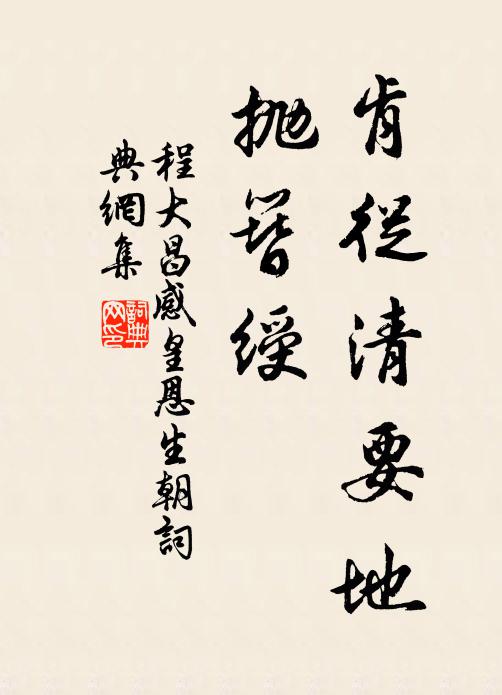 肯從清要地
拋簪綬
程大昌感皇恩生朝詞
典網集
詞典
网印